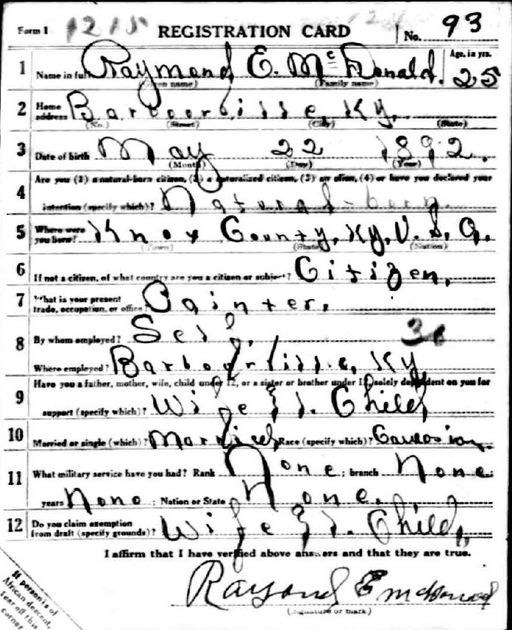 Form 1 1215 REGISTRATION CARD No. 93
1 Name in full Raymond E. McDonald. Age, in yrs. 25
(Given name) (Family name)
2 Home address Barbourville, Ky.
(No.) (Street) (City) (State)
3 Date of birth May 22 1892.
(Month) (Day) (Year)
4 Are you (1) a natural-born citizen, (2) a naturalized citizen, (3) an alien, (4) or have you declared your
intention (specify which)? Natural-born.
5 Where were you born? Knox County, Ky, U. S. A.
(Town) (State) (Nation)
6 If not a citizen, of what country are you a citizen or subject? Citizen.
7 What is your present trade, occupation, or office? Painter.
8 By whom employed? Self.
Where employed? Barbourville, Ky
9 Have you a father, mother, wife, child under 12, or a sister or brother under 12, solely dependent on you for
support (specify which)? Wife & 1. Child
10 Married or single (which)? Married Race (specify which)? Caucasian.
11 What military service have you had? Rank None; branch None
years None; Nation or State None.
12 Do you claim exemption from draft (specify grounds)? Wife & 1. Child,
I affirm that I have verified above answers and that they are true.
Raymond E McDonald
(Signature or mark)
If person is of
African descent,
tear off this
corner